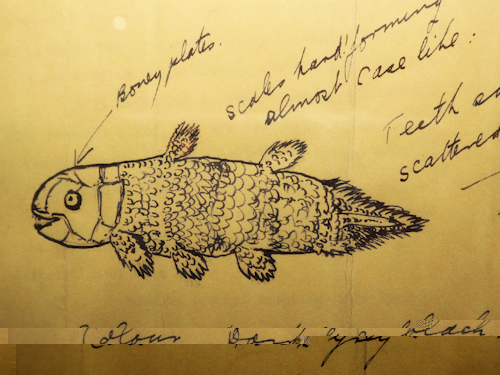 Boney plates.
Scales hard forming
almost case like:
Teeth
scattered
Colour